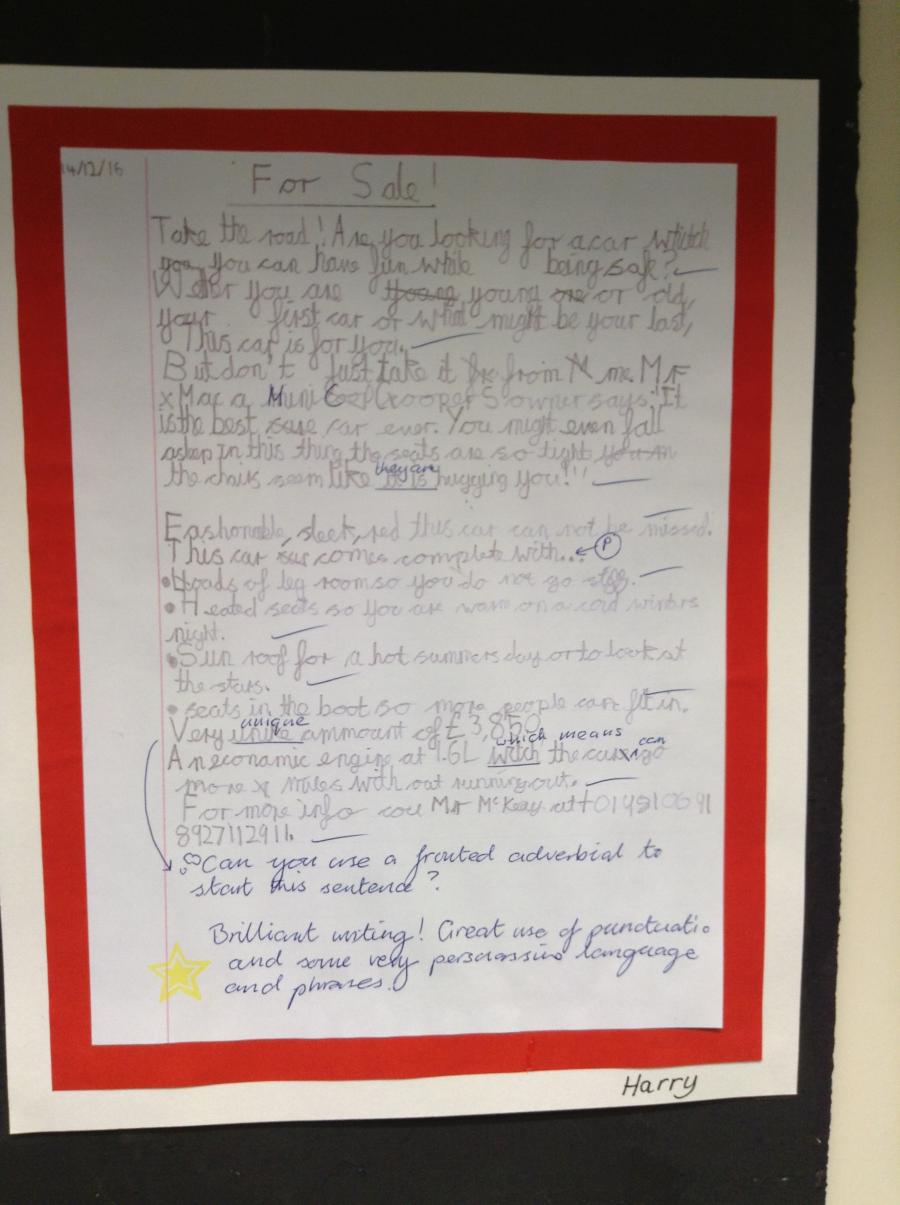 14/12/16
For Sale!
Take the road! Are you looking for a car whitch
you you can have fun while being safe?
Wether you are young young or or old,
your first car or what might be your last,
This car is for you.
But don't just take it from me Mr
x Max a Mini Cooper S owner says "It
is the best car ever. You might even fall
asleep in this thing the seats are so tight
the chairs seem like it is they are hugging you!"
Fashonable, sleek, red this car can not be missed.
This car comes complete with... P
• Loads of leg room so you do not go
• Heated seats so you are warm on a cold winters
night.
• Sun roof for a hot summers day or to look at
the stars.
• seats in the boot so more people can fit in.
Very unike unique ammount of £3,850
An economic engine at 1.6L witch which means the car can go
more miles with out running out.
For more info Mr McKeay at
8927112911.
Can you use a fronted adverbial to
start this sentence?
Brilliant writing! Great use of punctuatio
and some very persuassive language
and phrases.
Harry